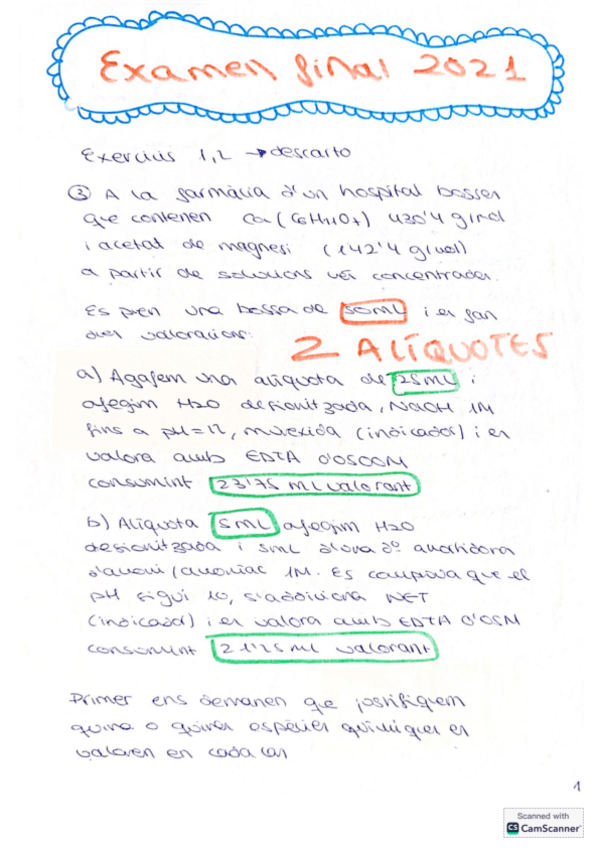 Examen final 2021
Exercicis 1,2 → descarto
③ A la farmàcia d'un hospital bosses
que contenen Ca(C6H11O7) 430'4 g/mol
i acetat de magnesi (142'4 g/mol)
a partir de solucions més concentrades.
Es pren una bossa de 50mL i es fan
dues valoracions:
2 ALÍQUOTES
a) Agafem una alíquota de 25mL i
afegim H2O desionitzada, NaOH 1M
fins a pH=12, murexida (indicador) i es
valora amb EDTA 0'0500M
consumint 23'75 mL valorant
b) Alíquota 5mL afegim H2O
desionitzada i 5mL d'una dº amortidora
d'amoni/amoníac 1M. Es comprova que el
pH sigui 10, s'addiciona NET
(indicador) i es valora amb EDTA 0'05M
consumint 21'25 mL valorant
Primer ens demanen que justifiquem
quina o quines espècies químiques es
valoren en cada cas
1
Scanned with
CS CamScanner